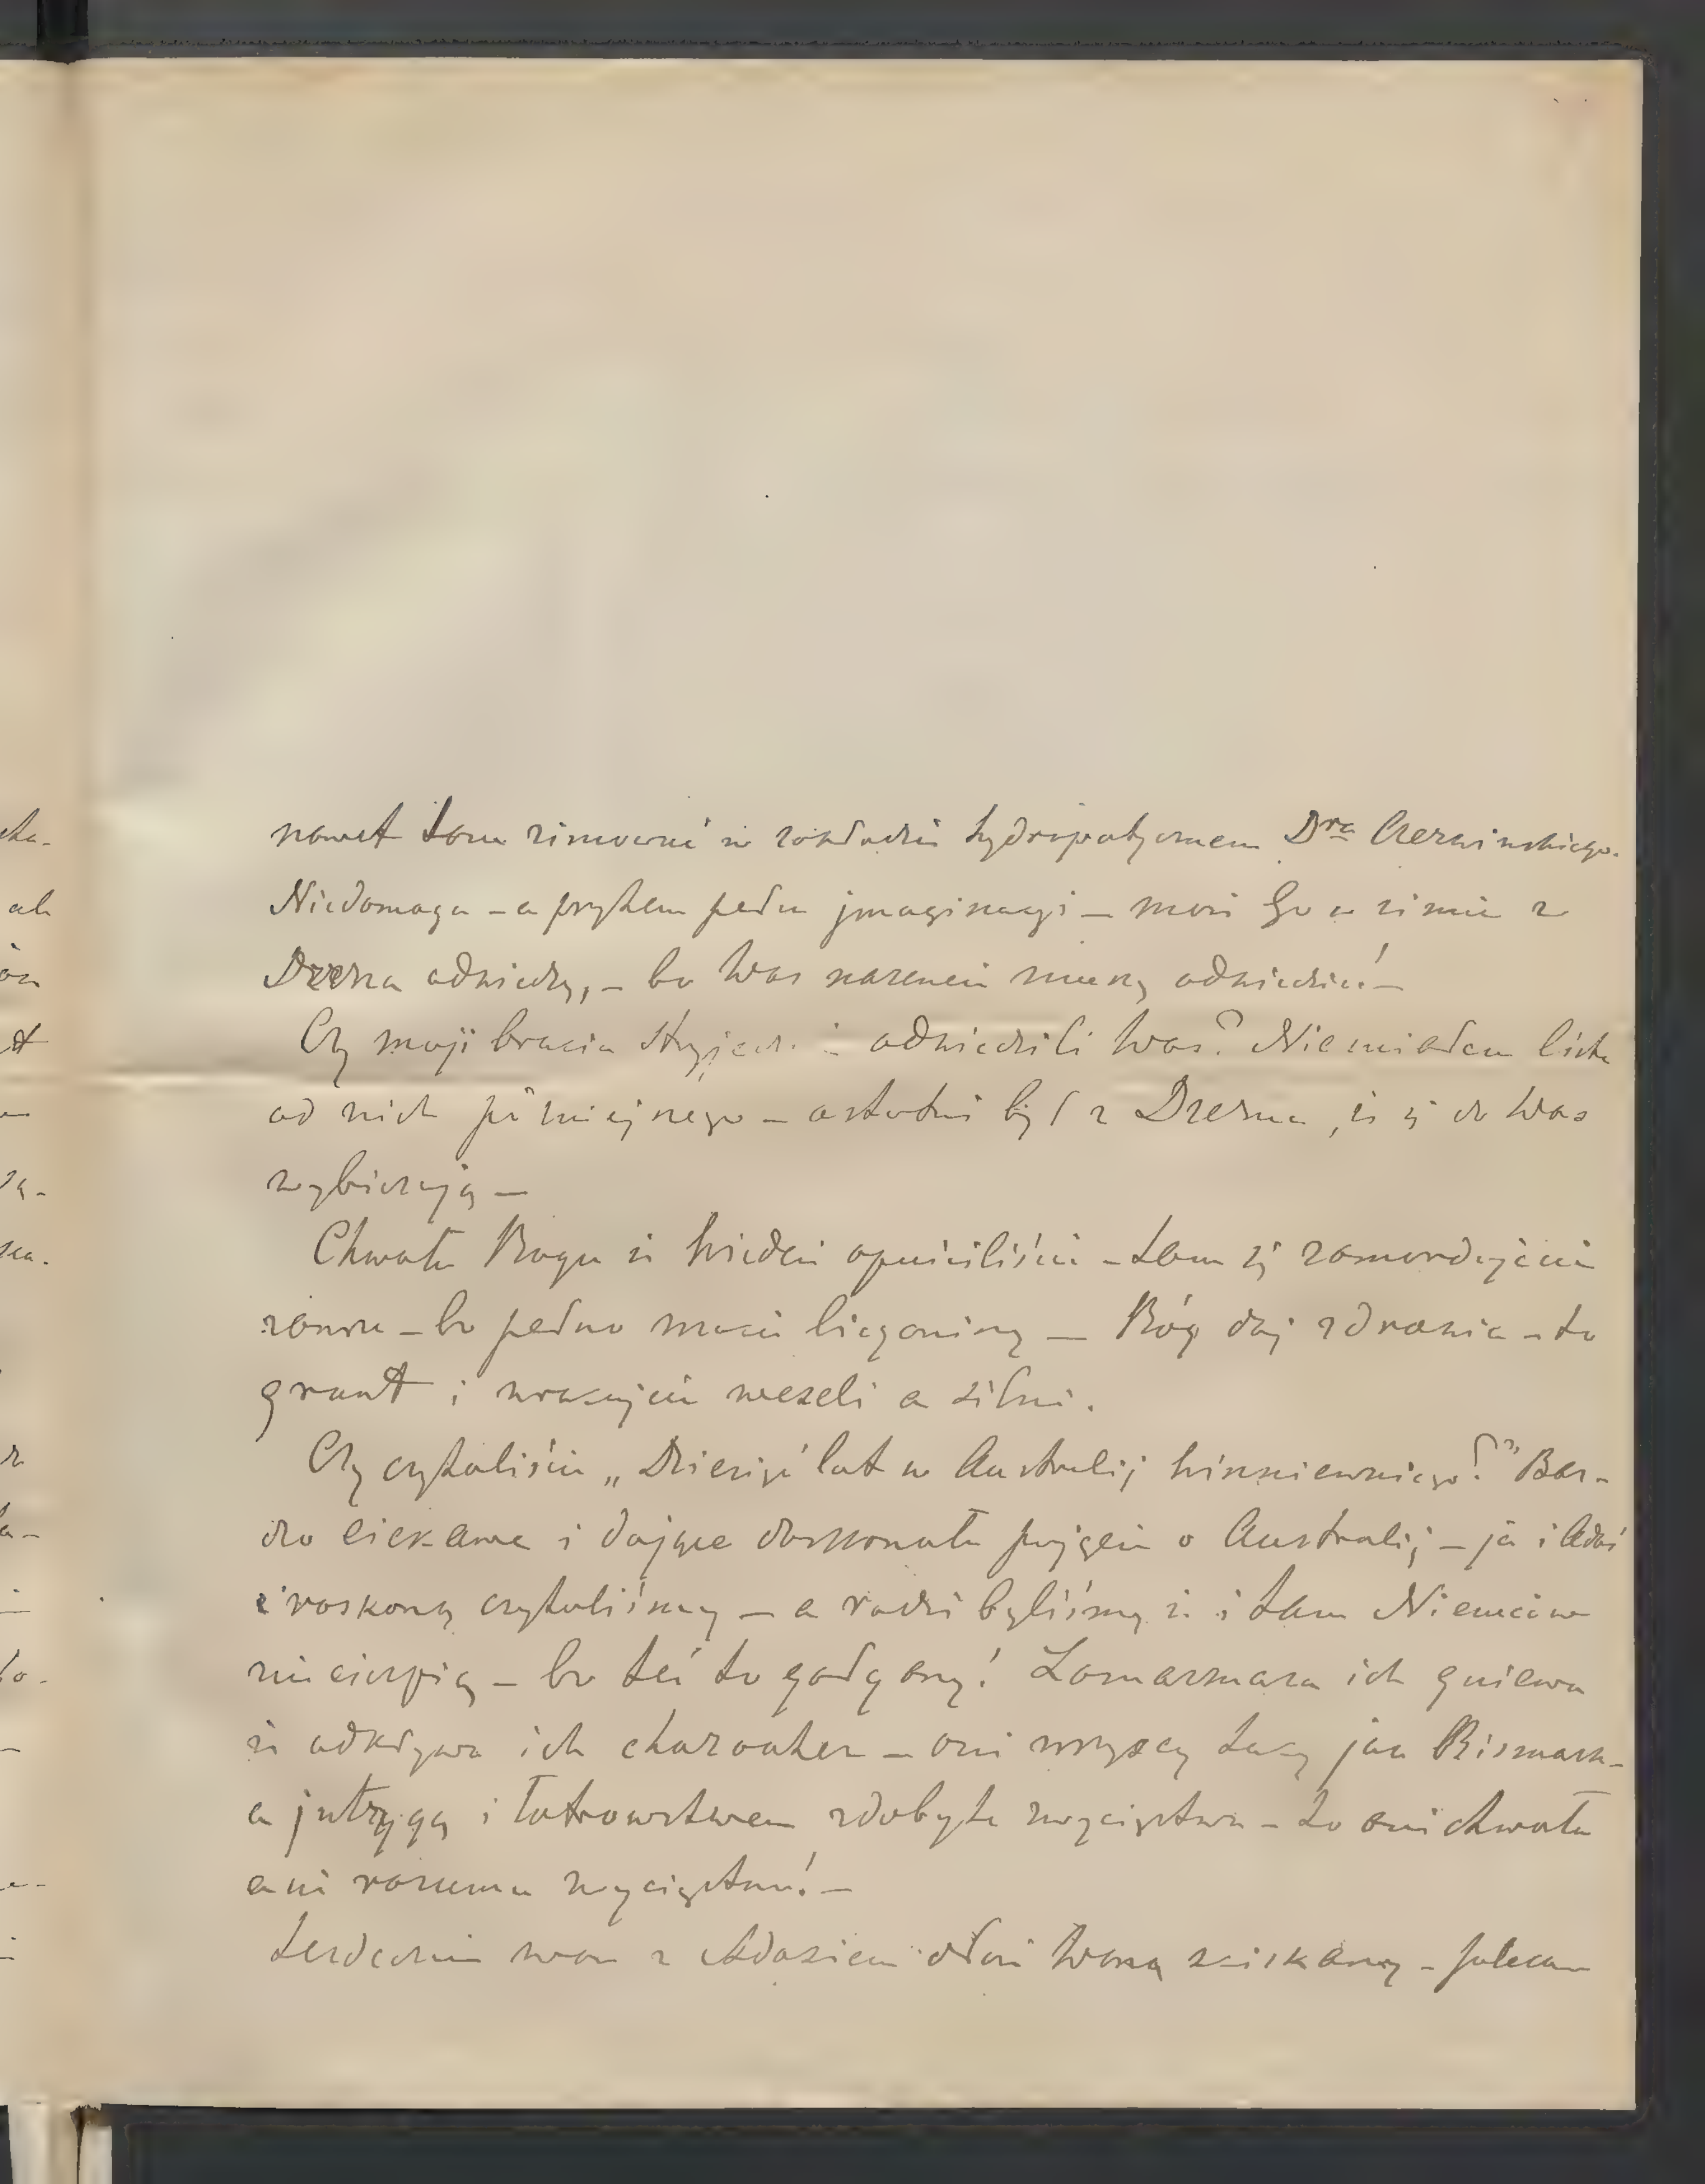 nawet tam zimować w zakładzie hydropatycznem Dra Czerwińskiego.
Niedomaga – a przytem pełen jmaginacyi – może Go w zimie z
Drezna odwiedzę, – bo Was nareszcie muszę odwiedzić! –
Czy moji bracia stryjeczni odwiedzili Was? Nie miałem listu
od nich późniejszego – ostatni był z Drezna, iż się do Was
wybierają –
Chwała Bogu iż Wiedeń opuściliście – tam się zamordujecie
zawsze – bo pełno macie bieganiny – Bóg daj zdrowie – to
grunt i wracajcie weseli a silni.
Czy czytaliście „Dziesięć lat w Australij Wiszniewskiego?” Bar-
dzo ciekawe i dające doskonałe pojęcie o Australij – ja i Adaś
z roskoszą czytaliśmy – a radzi byliśmy iż i tam Niemców
niecierpią – bo też to gałgany! Lamarmara ich gniewa
iż odkrywa ich charakter – oni wszyscy tacy jak Bismark –
a jntrygą i łotrowstwem zdobyte zwycięstwa – to ani chwała
ani rozumu zwycięstwo! –
Serdecznie wraz z Adasiem dłoń Waszą sciskamy – polecam